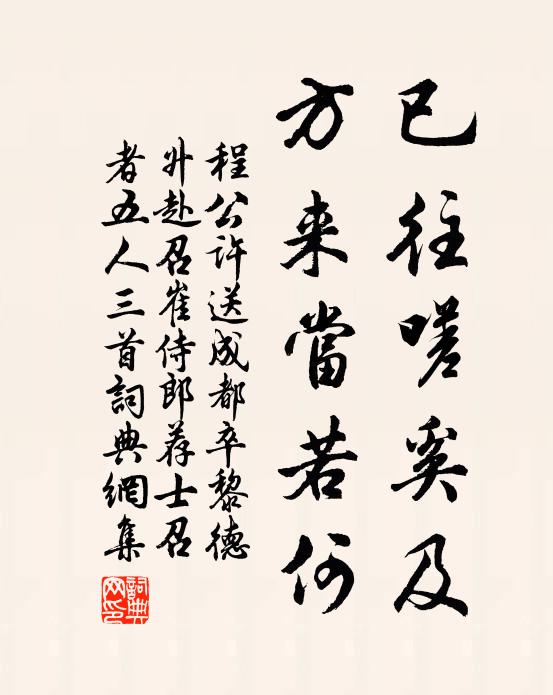 已往嗟奚及
方来當若何
程公許送成都卒黎德
升赴召崔侍郎荐士召
者五人三首詞典網集
詞典
网印